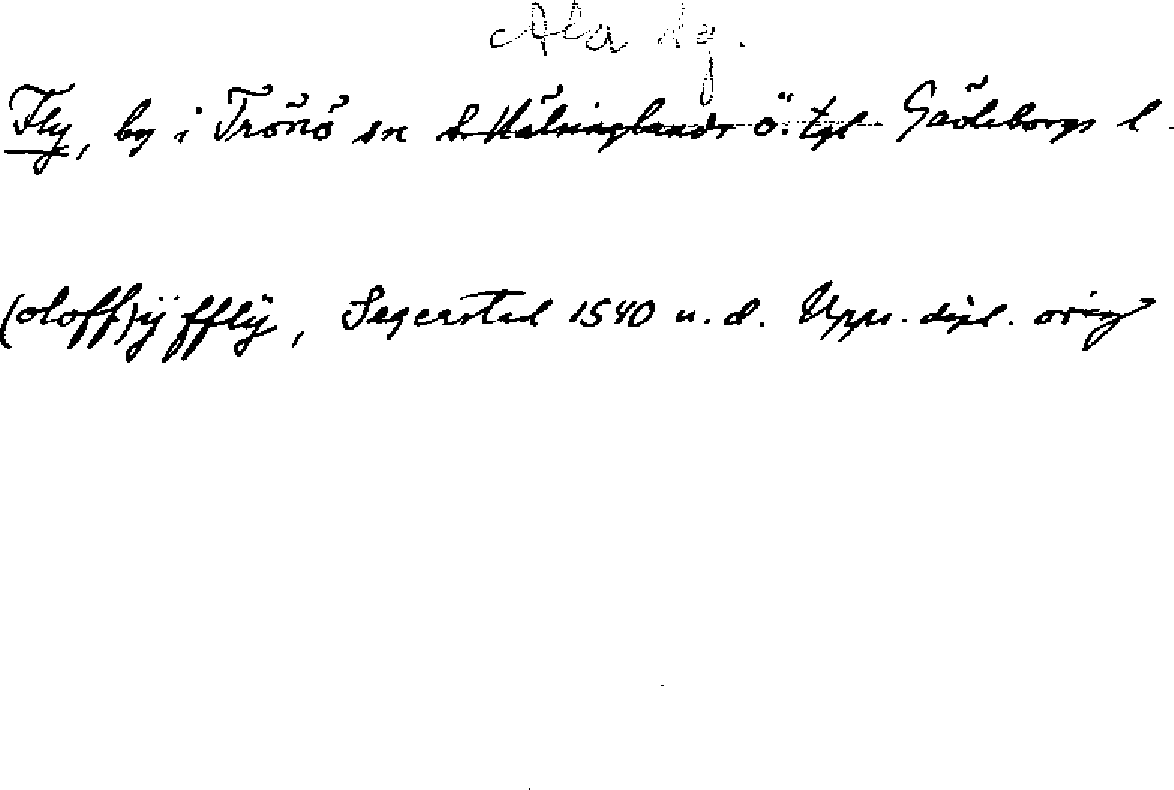 Ala hg.
Fly, by i Trönö sn S. Hälsinglands ö. tgl Gävleborgs l.
(oloff) ij fflÿ, Segerstad 1540 u. d. Upps. dipl. orig